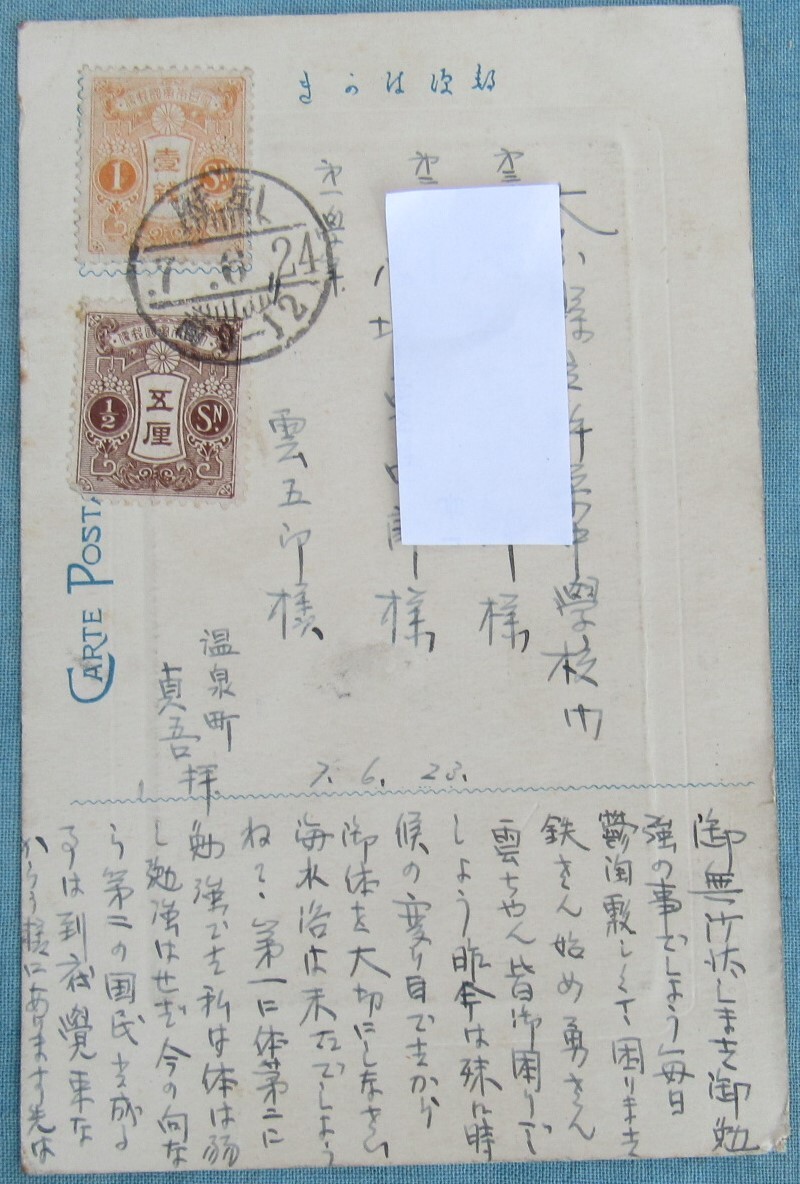 きかは便郵
CARTE POSTA
大日本帝國郵便
壹錢
1
SN
7.6.24
9-12
大日本帝國郵便
五厘
1/2
SN
中學校内
様
郎様
雲五郎様
温泉町
真吾拝
7. 6. 23.
御無沙汰します御勉
強の事でしよう毎日
鬱陶敷しくて困ります
鉄さん始め勇さん
雲ちやん皆御困りで
しよう昨今は殊に時
候の変り目ですから
御体を大切にしなさい
海水浴は未だでしよう
ねて、第一に体第二に
勉強です私は体は弱
し勉強はせず今の向な
ら第二の国民と成る
事は到底覺束な
からう様にあります先は